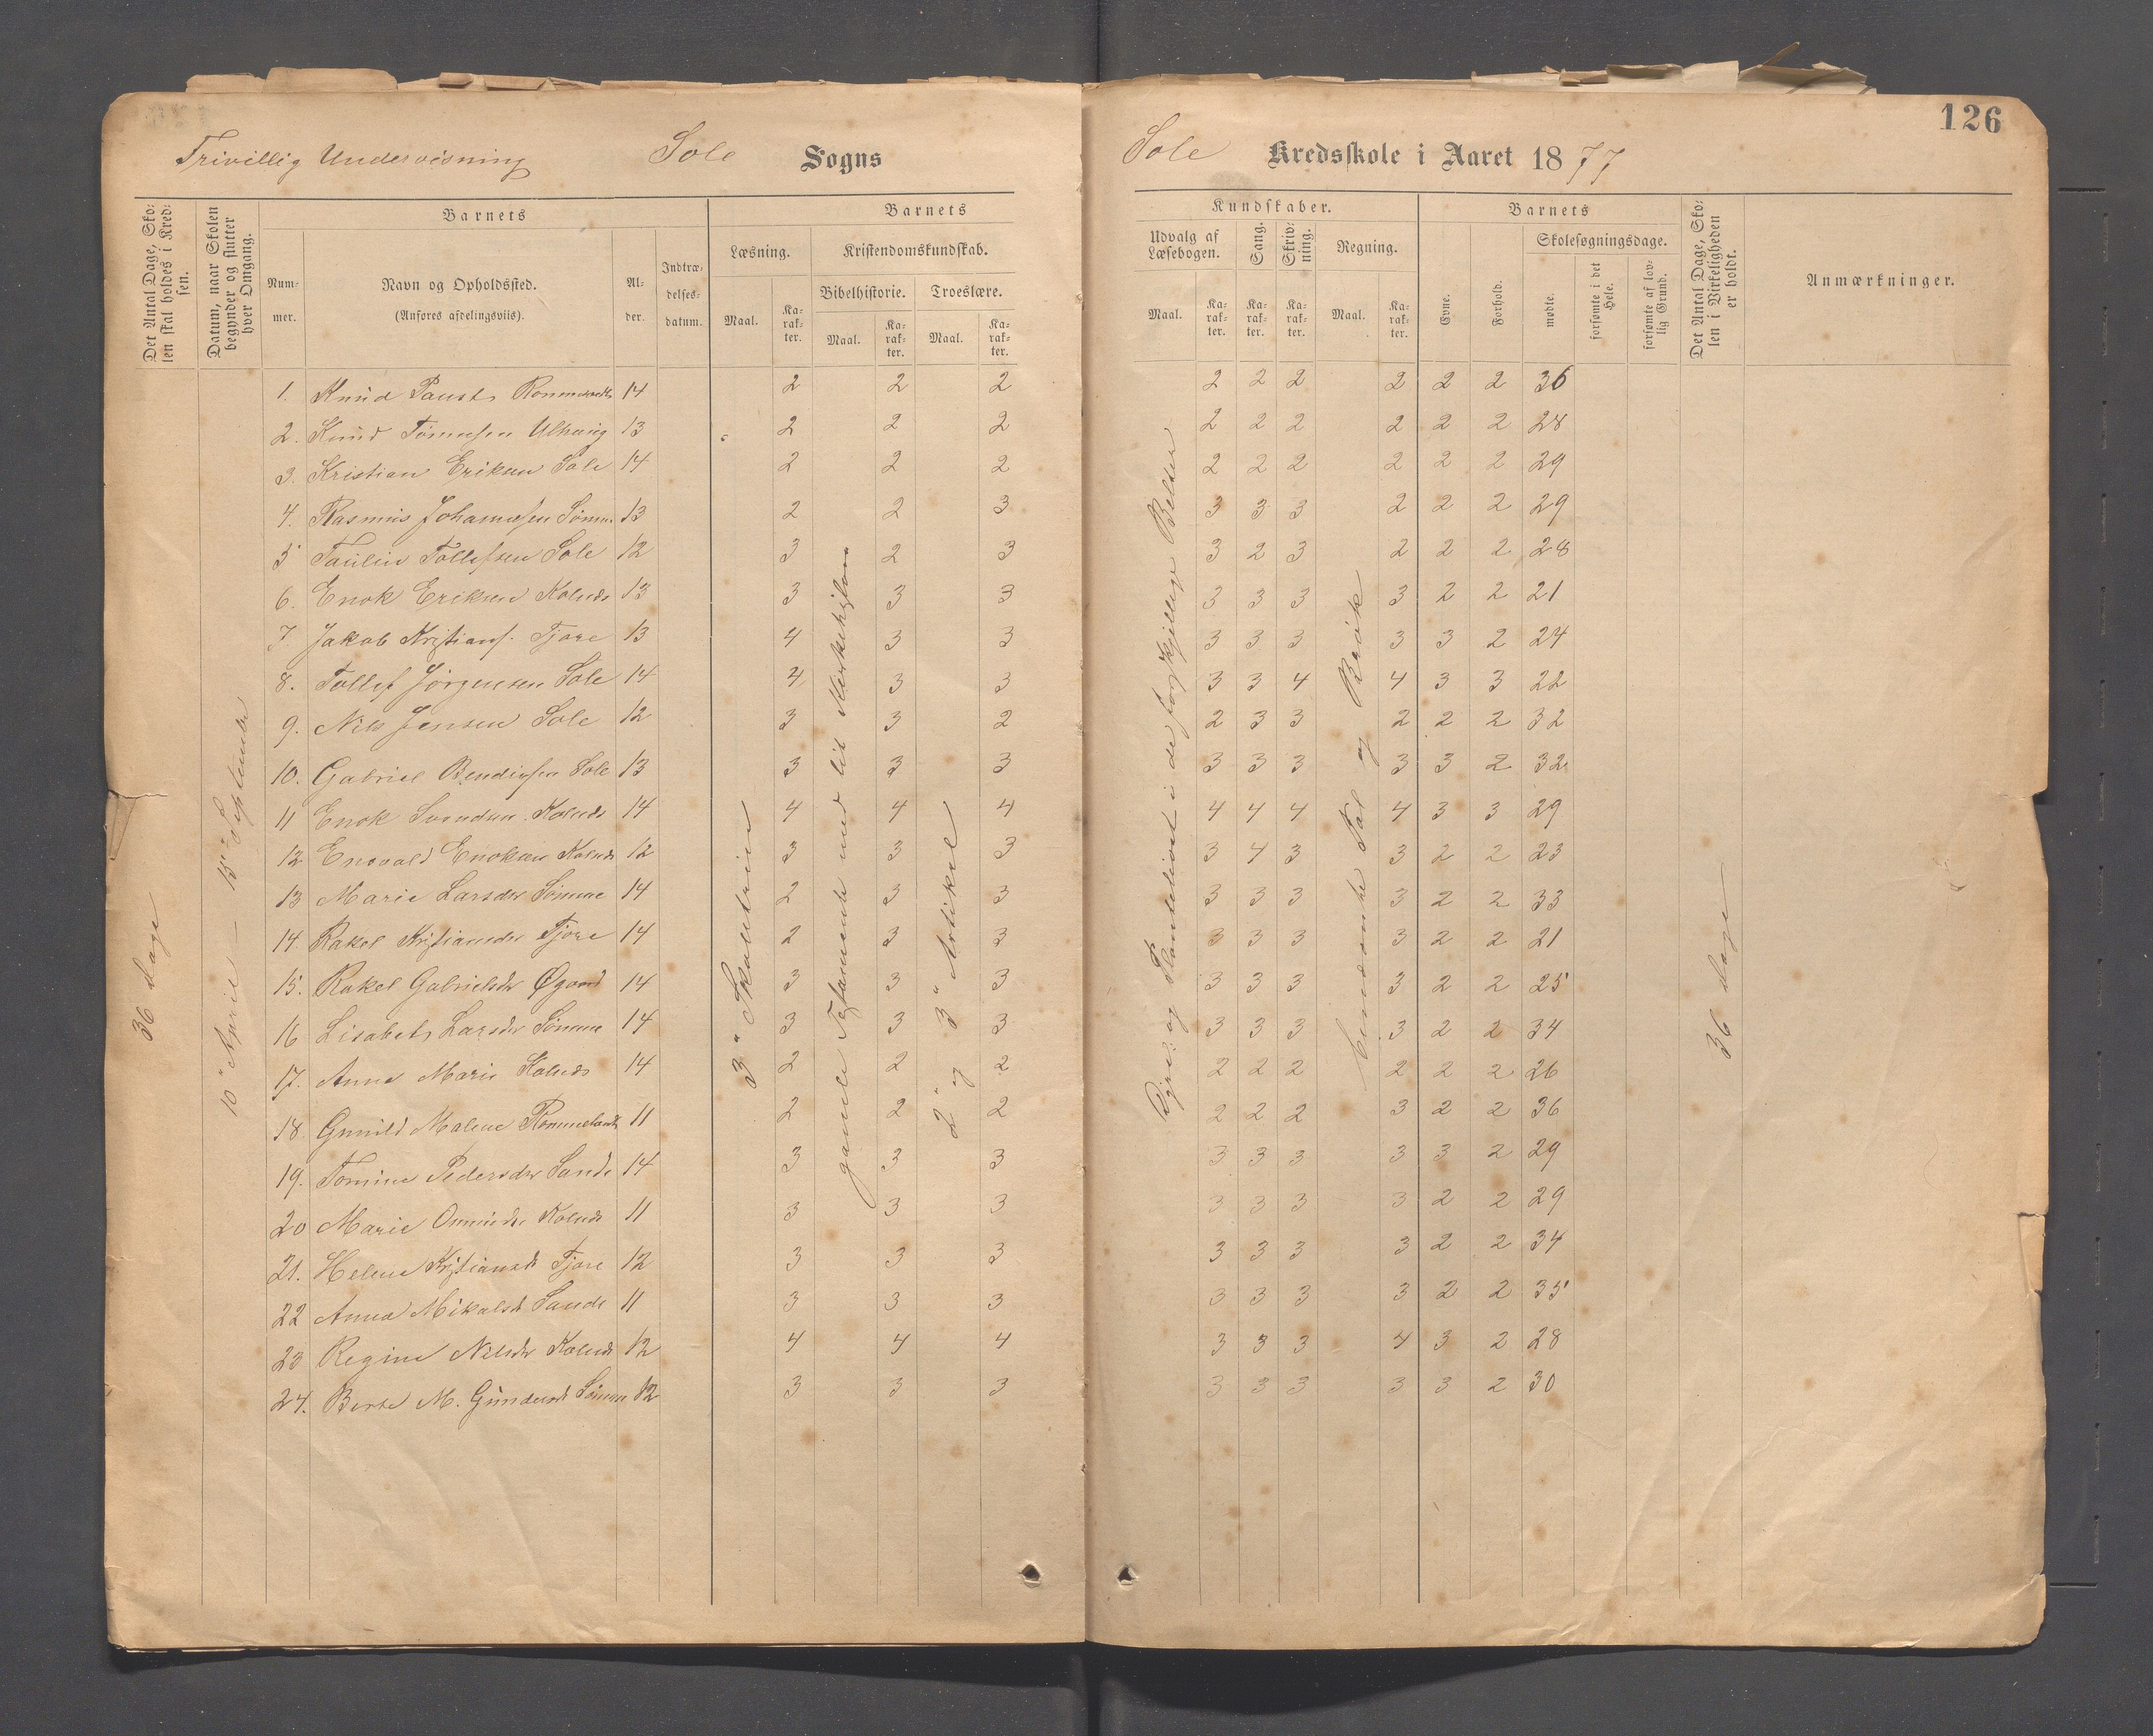 126
Frivillig Undervisning Sole Sogns
Sole Kredsskole i Aaret 1877
Det Antal Dage, Sko-
len skal holdes i Kred-
sen.
Datum, naar Skolen
begynder og slutter
hver Omgang.
Barnets
Num-
mer.
Navn og Opholdssted.
(Anføres afdelingsviis).
Al-
der.
Indtræ-
delses-
datum.
Barnets
Læsning.
Maal.
Ka-
rak-
ter.
Kristendomskundskab.
Bibelhistorie.
Maal.
Ka-
rak-
ter.
Troeslære.
Maal.
Ka-
rak-
ter.
Kundskaber.
Udvalg af
Læsebogen.
Maal.
Ka-
rak-
ter.
Sang.
Ka-
rak-
ter.
Skriv-
ning.
Ka-
rak-
ter.
Regning.
Maal.
Ka-
rak-
ter.
Barnets
Evne.
Forhold.
Skolesøgningsdage.
mødte.
forsømte i det
Hele.
forsømte af lov-
lig Grund.
Det Antal Dage, Sko-
len i Virkeligheden
er holdt.
Anmærkninger.
36 Dage
10" April – 15" September
3" Skoletrin
gamle Testamente med lit Kirkehistorie
2" og 3" Artikel
Dyre- og Plantelivet i de forskjellige Belter
Benævnte Tal og Brøk
36 Dage
1. Knud Pausts 14 2 2 2 2 2 2 2 2 2 36
2. Knud Tønnesen 13 2 2 2 2 2 2 2 2 2 28
3. Kristian Eriksen Sole 14 2 2 2 2 2 2 2 2 2 29
4. Rasmus Johannesen Sømme 13 2 2 3 3 3 3 2 2 2 29
5 Paulin Tollefsen Sole 12 3 2 3 3 2 3 2 2 2 28
6. Enok Eriksen Kolneds 13 3 3 3 3 3 3 3 2 2 21
7 Jakob Kristians. Tjore 13 4 3 3 3 3 3 3 3 2 24
8. Tollef Jørgensen Sole 14 4 3 3 3 3 4 4 3 3 22
9. Nils Jensen Sole 12 3 3 2 2 3 3 2 2 2 32
10. Gabriel Bendiksen Sole 13 3 3 3 3 3 3 3 3 2 32
11 Enok Svendsen Kolneds 14 4 4 4 4 4 4 4 3 3 29
12 Enevald Enoksen Kolneds 12 3 3 3 3 4 3 3 2 2 23
13 Marie Larsdr Sømme 14 2 3 3 3 3 3 3 2 2 33
14. Rakel Kristiansdr Tjore 14 2 3 3 3 3 3 3 2 2 21
15. Rakel Gabrielsdr Øgard 14 3 3 3 3 3 3 3 2 2 25
16 Lisabeth Larsdr Sømme 14 3 3 3 3 3 3 3 2 2 34
17. Anna Marie Kolneds 14 2 2 2 2 2 2 2 2 2 26
18. Gunild Malene 11 2 2 2 2 2 2 3 2 2 36
19. Tomine Pedersdr Sande 14 3 3 3 3 3 3 3 3 2 29
20 Marie Omundsdr Kolneds 11 3 3 3 3 3 3 3 2 2 29
21. Helene Kristiansdr Tjore 12 3 3 3 3 3 3 3 2 2 34
22 Anna Mikalsdr Sande 11 3 3 3 3 3 3 3 2 2 35
23 Regine Nilsdr Kolneds 12 4 4 4 3 3 3 4 3 2 28
24. Berte M. Gundersdr Sømme 12 3 3 3 3 3 3 3 3 2 30